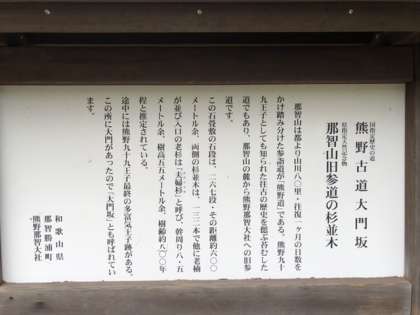 国指定歴史の道
熊野古道大門坂
県指定天然記念物
那智山旧参道の杉並木
那智山は都より山川八〇里・往復一ヶ月の日数を
かけ踏み分けた参詣道が「熊野道」である。熊野九十
九王子としても知られた往古の歴史を偲ぶ苔むした
道でもあり、那智山の麓から熊野那智大社への旧参
道です。
この石畳敷の石段は、二六七段・その距離約六〇〇
メートル余、両側の杉並木は、一三二本で他に老樟
が並び入口の老杉は「夫婦杉」と呼び、幹周り八・五
メートル余、樹高五五メートル余、樹齢約八〇〇年
程と推定されている。
途中には熊野九十九王子最終の多富気王子跡がある。
この所に大門があったので「大門坂」とも呼ばれてい
ます。
和歌山県
那智勝浦町
熊野那智大社